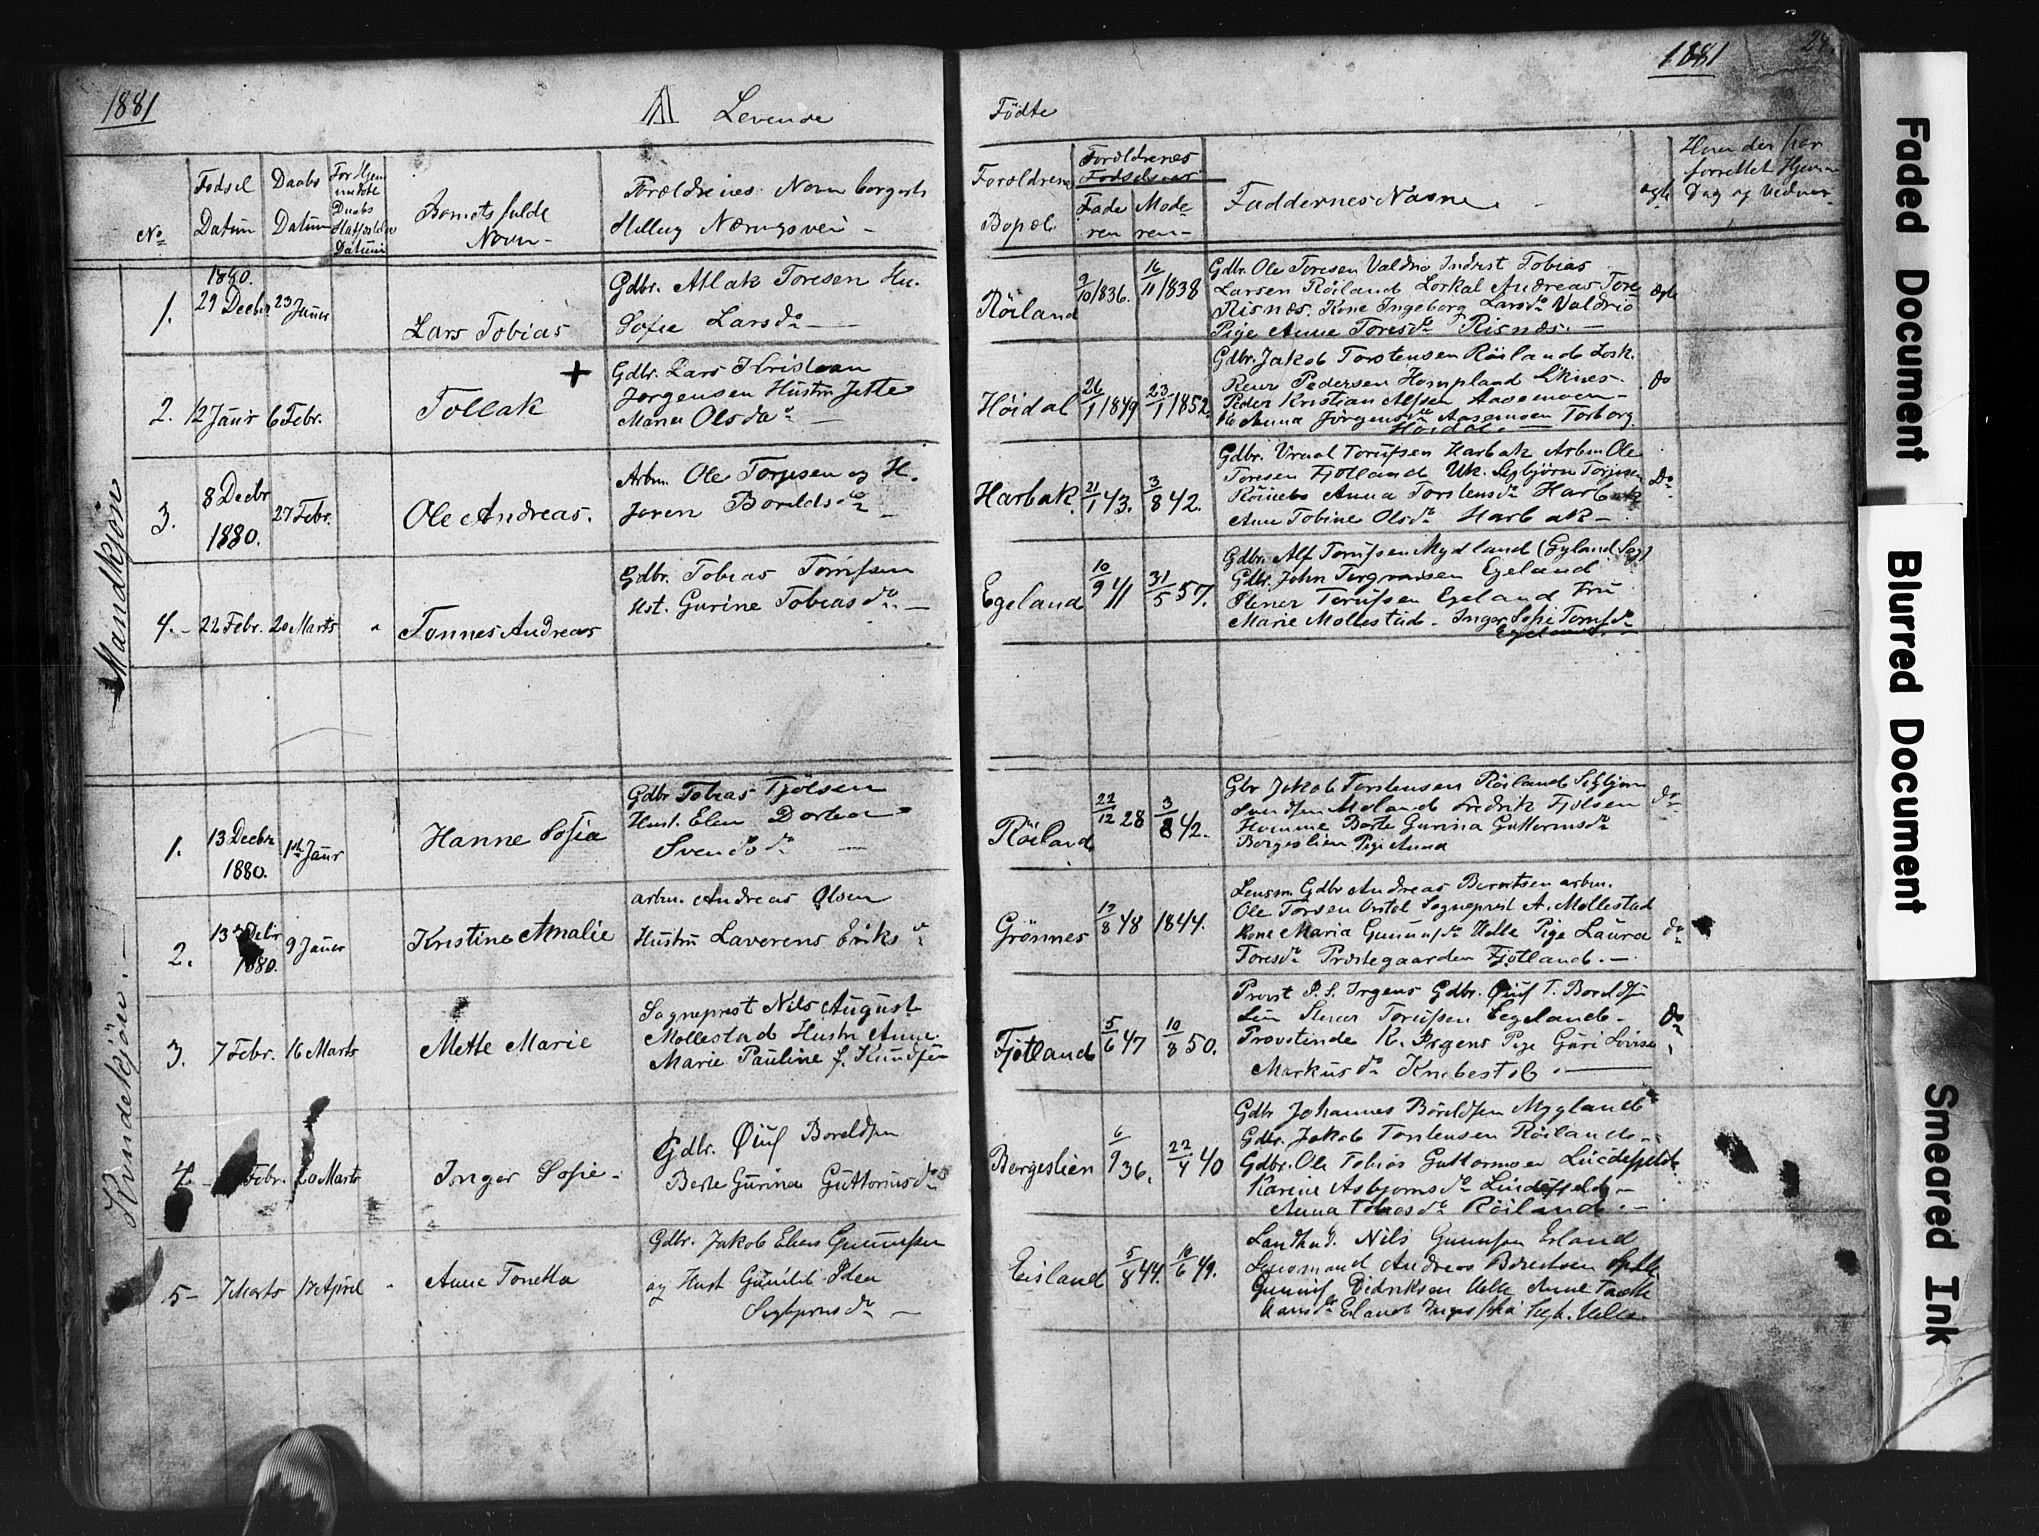 1881
A Levende
Födte
1881
No
Fodsel Datum
Daabs Datum
Daabs
Datum
Barnets fulde Navn
Foræld​renes Navn borgerli
Næringsvei
Forældrene Bopæl
Forældrenes Fodselsaar
Faderen
Moderen
Faddernes Navne
ægte
Dag og Vedner
Mandkjön
1.
1880.
29 Decbr
23 Januer
Lars Tobias
Gdbr. Atlak Toresen Hu.
Sofie Larsdr
Röiland
9/10 1836.
16/11 1838
Gdbr. Ole Toresen Valdrio Indrst Tobias
Larsen Röiland Loskal Andreas Tore
Risnæs. Kone Ingeborg Larsdr Valdrio
Pige Anne Toresdr Risnæs.
ægte
2.
12 Janr
6 Febr.
Tollak
Gdbr. Lars Kristian
Jørgensen Hustru Jette
Maria Olsdr
Höidal
26/1 1849
23/1 1852.
Gdbr. Jakob Torstensen Röiland Losk.
Reier Pedersen Hompland
Peder Kristian Alfsen Aasemoen
Anna Jörgensdr Aasemoen Torborg
Höidal
Do
3.
8 Decbr
1880.
27 Febr.
Ole Andreas.
Arbm. Ole Torjesen og H.
Joren Boreldsdr
Harbak.
21/1 43.
3/8 42.
Gdbr. Torufsen Harbak Arbm Ole
Toresen Fjotland Uk. Sigbjörn Torjesen
Anna Torstensdr Harbak
Ane Tobine Olsdr Harbak
Do
4.
22 Febr.
20 Marts
Tonnes Andreas
Gdbr. Tobias Torrifsen
Hst. Gurine Tobiasdr.
Egeland
10/9 41
31/5 57.
Gdbr. Alf Torufsen Mydland (Gyland Sog)
Gdbr. John Egeland
Stener Torufsen Egeland Fru
Marie Mollestad. Inger Sofie
Egeland.
Kvindekjön.
1.
13 Decbr
1880.
Janr
Hanne Sofia
Gdbr Tobias Tjölsen
Hust. Elen Dortea
Svendsdr
Röiland
22/12 28
3/8 42.
Gbr Jakob Torstensen Röiland Sigbjörn
Svendsen Moland Fredrik Fjolsen
Homme Berte Gurina Guttormsdr
Borgeslien Pige Anna
do
2.
13 Debr
1880.
9 Januer
Kristine Amalie
arbm. Andreas Olsen
Hustru Laverens Eriksdr
Grönnes
19/8 48
1844.
Lensm. Gdbr Andreas Berntsen arbm.
Ole Torsen Sogneprest A. Mollestad
Kone Maria Gunufsdr Helle Pige Laura
Toresdr Prestegaarden Fjotland.
do
3.
7 Febr.
16 Marts
Mette Marie
Sogneprest Nils August
Mollestad Hustr Anne
Marie Pauline f. Knudsen
Fjotland
5/6 47
10/8 50.
Provst P. S. Irgens Gdbr. Öiuf T. Boreldsen
Stener Torufsen Egeland.
Provstinde K. Irgens Pige Guri Lovise
Markusdr Knabestöl.
Do
4.
Febr.
20 Marts
Inger Sofie
Gdbr. Öiuf Boreldsen
Berte Gurina Guttormsdr
Borgeslien
6/9 36.
22/4 40
Gdbr Johannes Böreldsen Mygland
Gdbr. Jakob Torstensen Röiland
Gdbr. Ole Tobias Guttormsen
Karine Asbjornsdr Lindefjeld
Anna Tobiasdr Röiland.
5
7 Marts
17 April
Anne Tonetta
Gdbr. Jakob Elias Gunufsen
og Hust Gunild Iden
Sigbjornsdr
Eisland
5/8 44.
16/6 49.
Landhnd. Nils Gunufsen Erland
Lensmand Andreas Berntsen
Gunuf Didriksen Helle Anne
Erland Helle.
Faded Document
Blurred Document
Smeared Ink